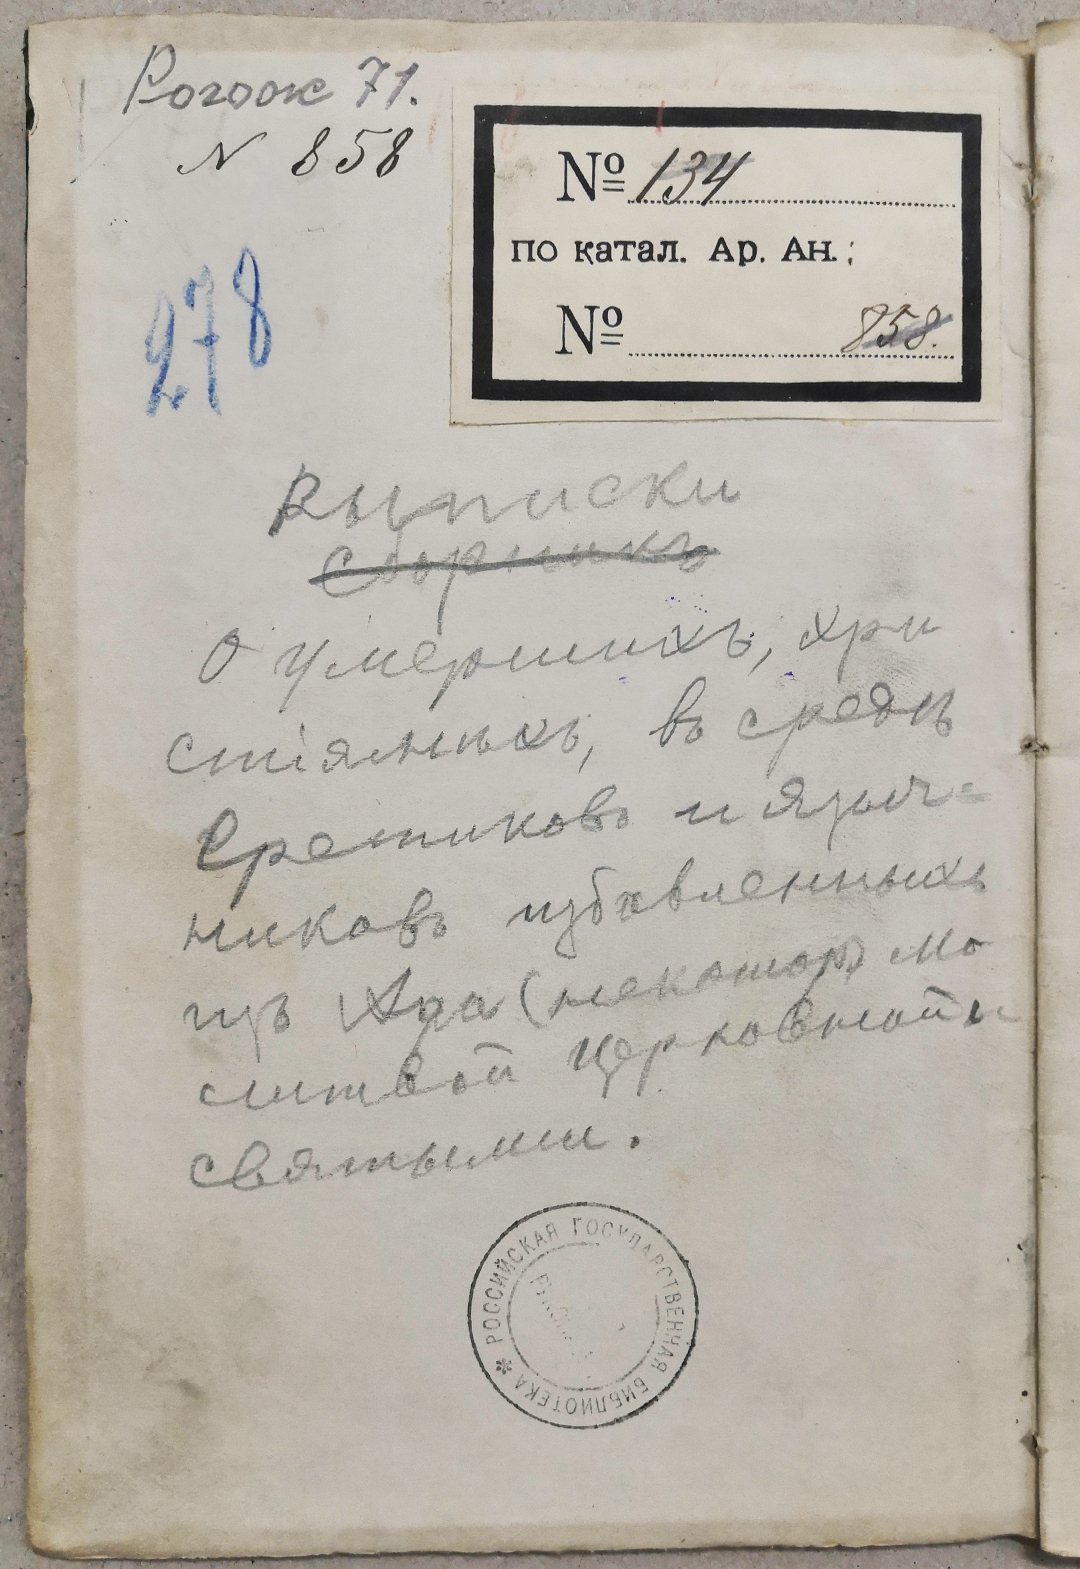 Рогожс 71.
N 858
№ 134
по катал. Ар. Ан.:
№ 858.
278
Выписки
сборникъ
О умершихъ, хри
стіянъхъ, въ средѣ
Еретиковъ и языч=
никовъ избавленныхъ
изъ Ада (некотор) мо
литвой церковной и
святыми.
РОССИЙСКАЯ ГОСУДАРСТВЕННАЯ БИБЛИОТЕКА